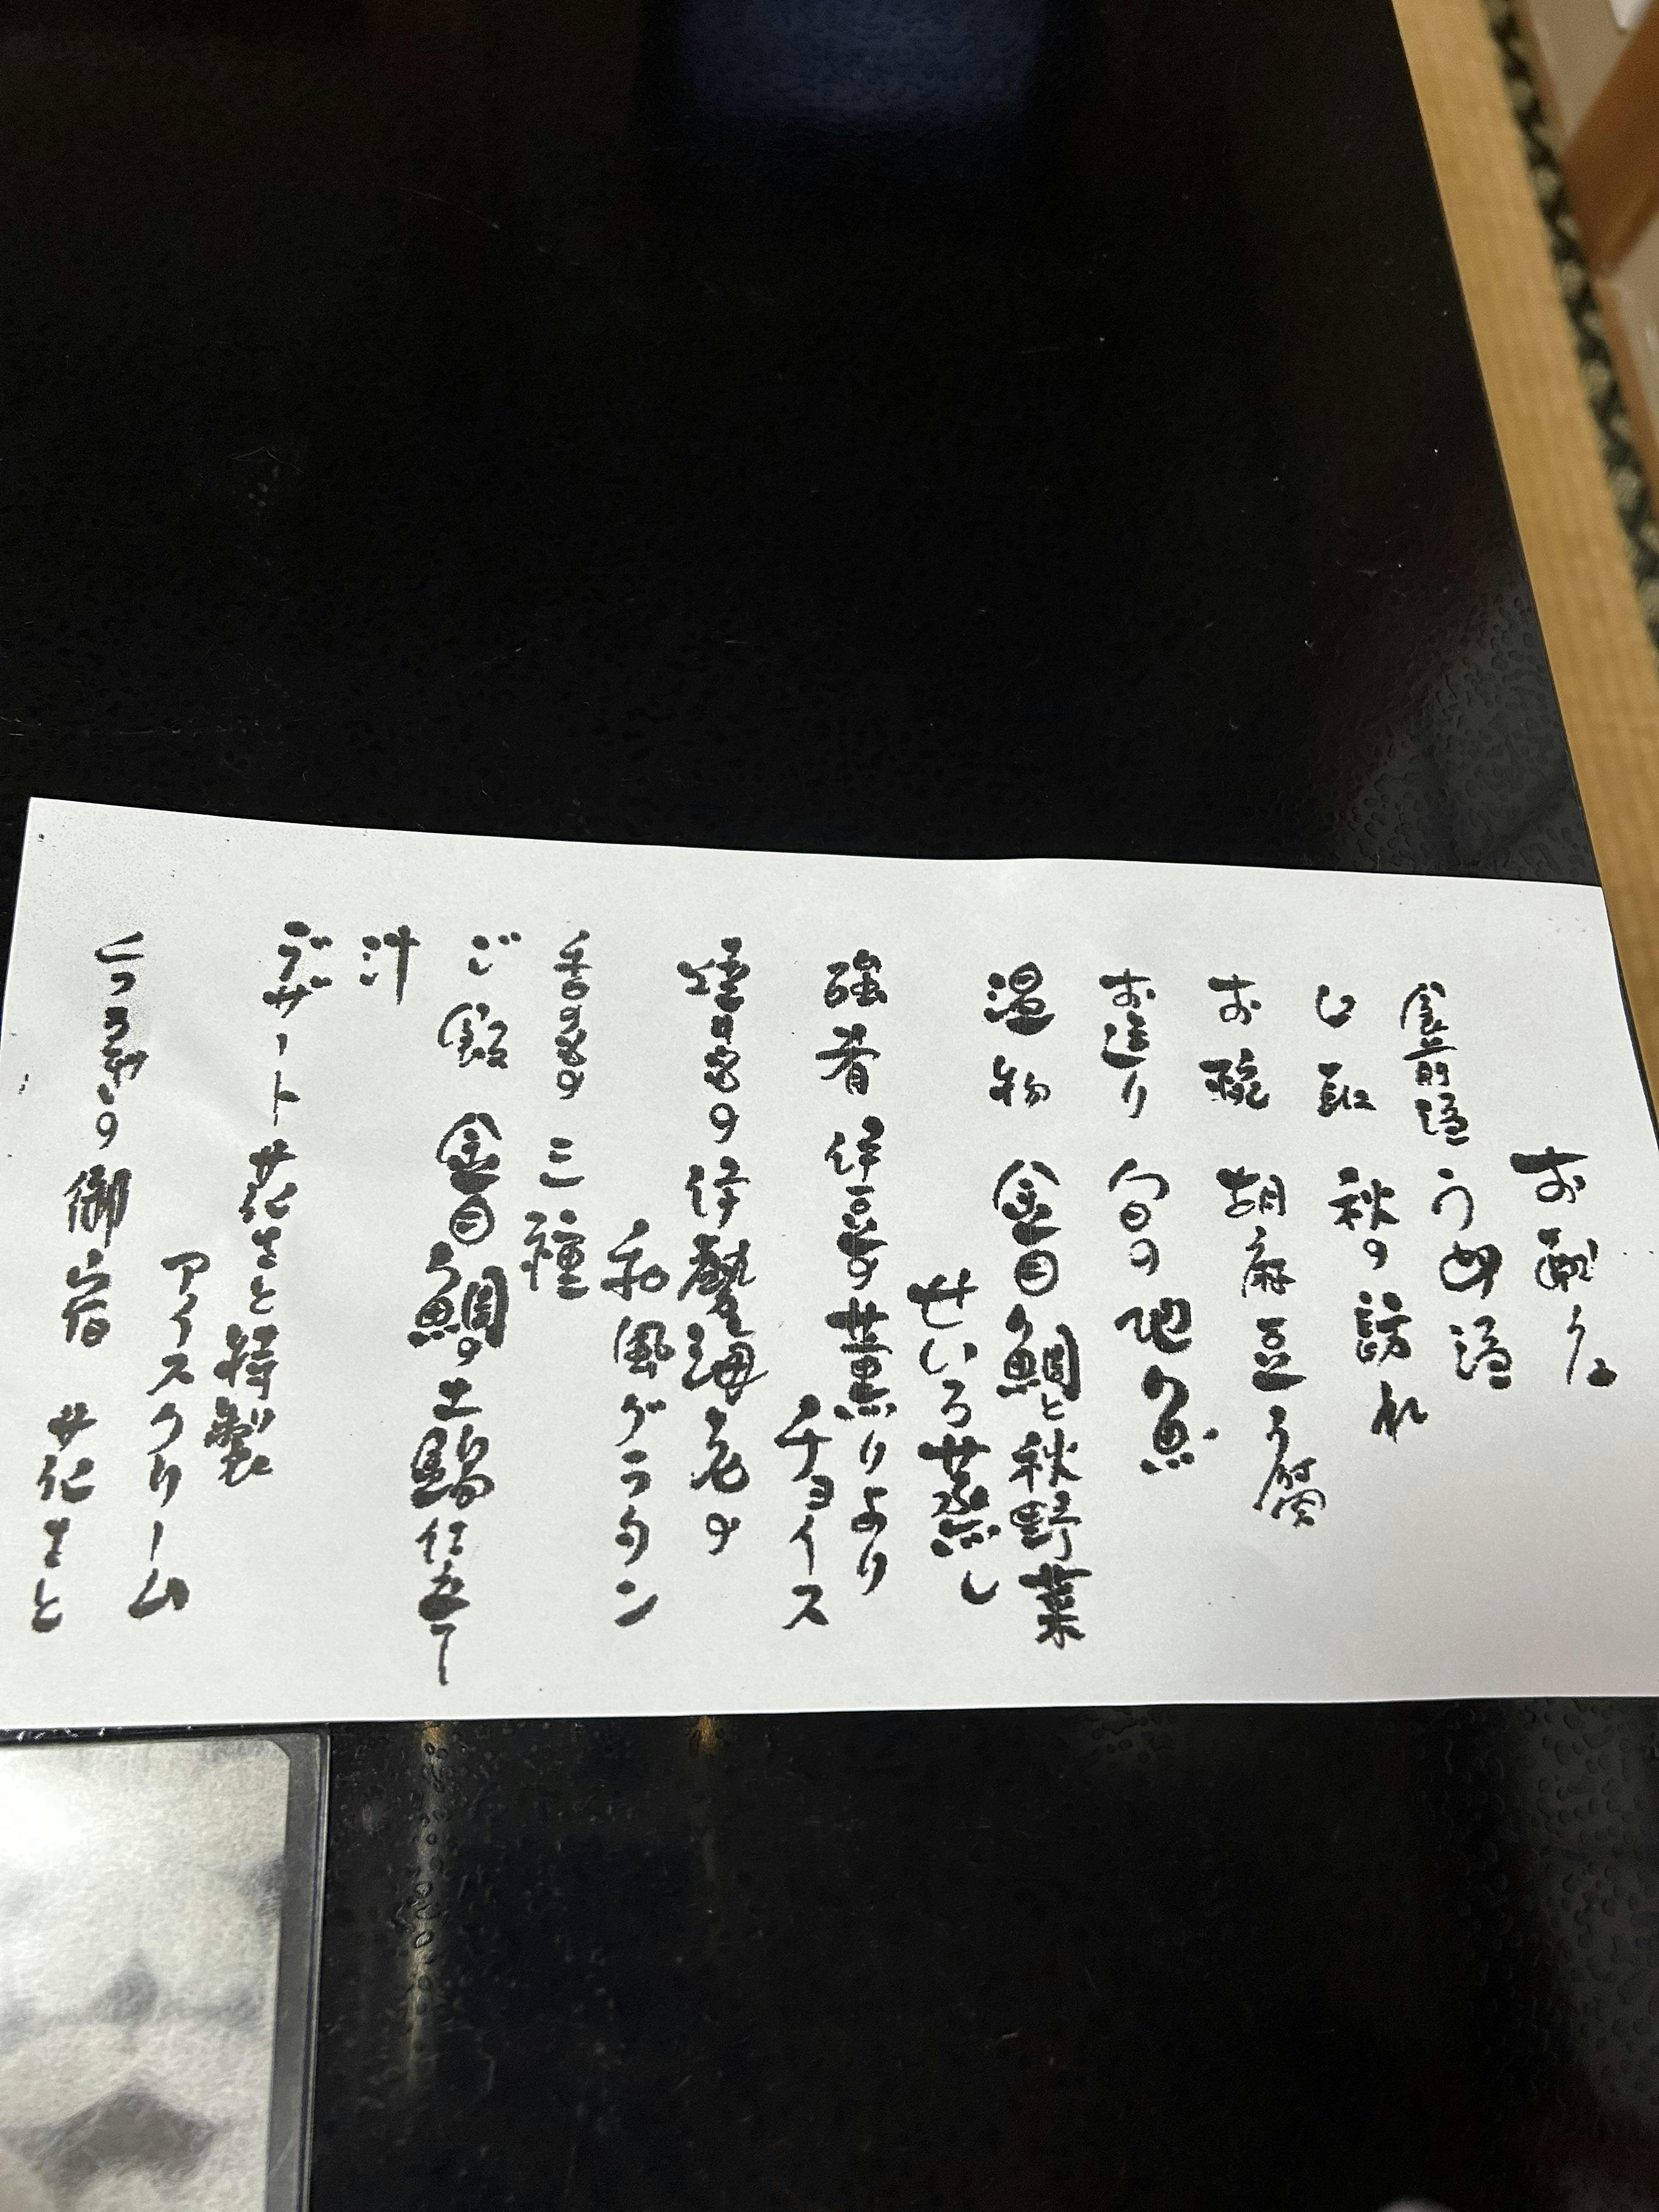 お献立
食前酒 うめ酒
口取 秋の訪れ
お椀 胡麻豆腐
お造り 旬の地魚
温物 金目鯛と秋野菜
せいろ蒸し
強肴 伊豆の薫りより
チョイス
焼きもの 伊勢海老の
和風グラタン
香のもの 三種
ご飯 金目鯛の土鍋仕立て
汁
デザート 花さと特製
アイスクリーム
御宿 花さと